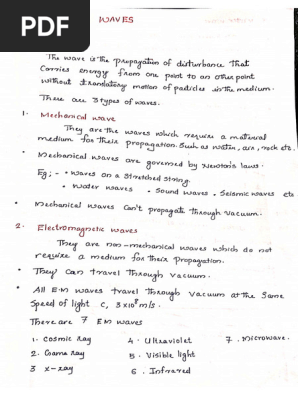 PDF
WAVES
The wave is the propagation of disturbance that
carries energy from one point to an other point
without translatory motion of particles in the medium.
There are 3 types of waves.
1. Mechanical wave
They are the waves which require a material
medium for their propagation. Such as water, air, rock etc.
• Mechanical waves are governed by Newton's laws.
Eg; - • Waves on a stretched string.
• Water waves • Sound waves • Seismic waves etc
• Mechanical waves can't propagate through vacuum.
2. Electromagnetic waves
They are non-mechanical waves which do not
require a medium for their propagation.
• They can travel through vacuum.
• All E.M waves travel through vacuum at the same
speed of light C, 3×10⁸ m/s.
There are 7 EM waves
1. Cosmic ray 4. Ultraviolet 7. Microwave.
2. Gama ray 5. Visible light
3 X-ray 6. Infrared